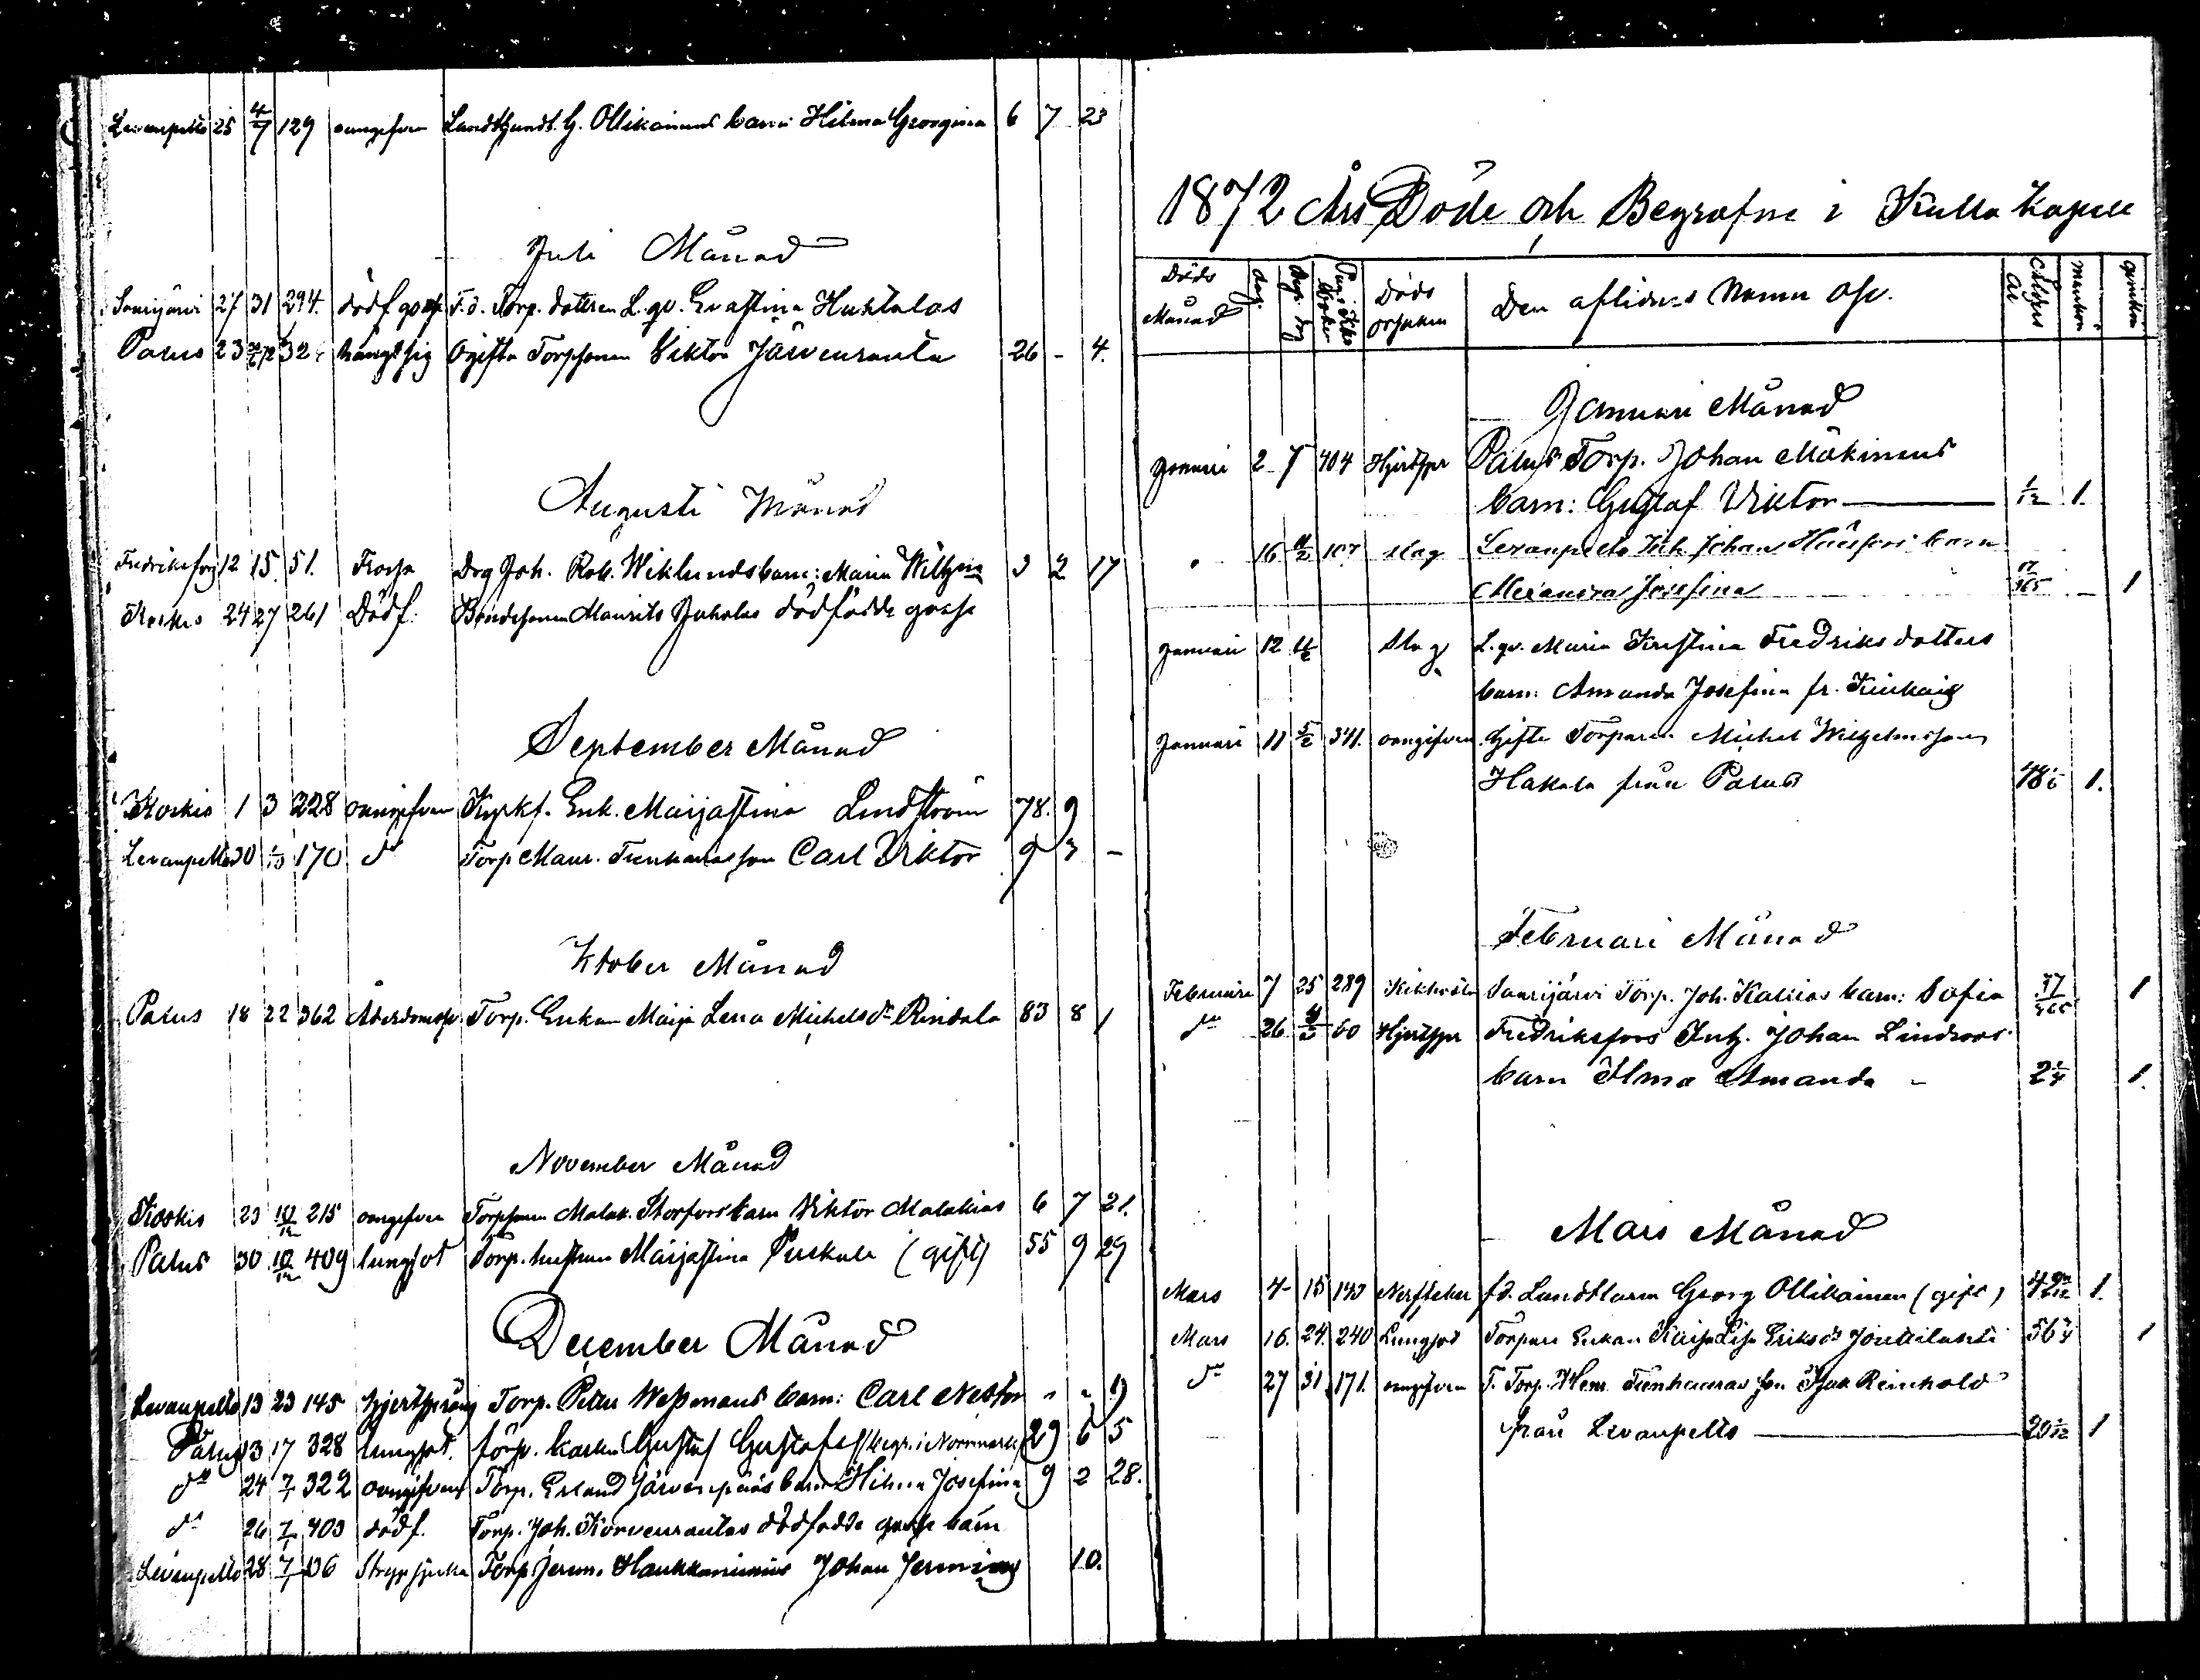 Levanpelto 25 4/7 129 oangifven Landtbundt. G. Ollikainens barn: Hilma Georgina 6 7 23
Juli Månad
Samijärvi 27 31 294. dödf. gosse F.d. Torp. dottren L. qv. Evastina Huhtalas
Palus 23 32 hängt sig Ogifta Torpsonen Viktor Järvenranta 26 - 4.
Augusti Månad
Fredriksfors 12 15. 51. Frossa Drg Joh. Rob. Wiklunds barn: Maria Wilhma 3 2 17
Koskis 24 27 261 Dödf. Bondesonen Maurits Juholas dödfödde gosse
September Månad
Koskis 1 3 228 oangifven Kyrkf. Enk. Maijastina Lindström 78. 9
Levanpelto 30 1/10 170 do Torp Maur. Tunkaras son Carl Viktor 9 3 -
Oktober Månad
Palus 18 22 362 Ålderdomssv. Torp. Enkan Maija Lena Michelsdr Rindala 83 8 1
November Månad
Koskis 23 10/12 215 oangifven Torpsonen Malak. Storfors barn Viktor Malakias 6 7 21.
Palus 30 10/12 409 lungsot Torp. hustrun Maijastina Puskala (gift) 55 9 29
December Månad
Levanpelto 13 23 145 hjertspräng Torp. Petter Wessmans barn: Carl Nestor - - 9
Palus 13 17 328 lungsot. förp. karlen Gustaf Gustafss (begr. i Norrmark) 29 6 5
do 24 7/1 322 oangifven Torp. Erland Järvenpääs barn Hilma Josefina 9 2 28.
do 26 7/1 403 dödf. Torp. Joh. Korvenrantas dödfödde gosse barn
Levanpelto 28 7/1 136 Strypsjuka Torp Jerem. Haukkaniemis Johan Jermias 10.
1872 Års Döde och Begrafne i Kulla Kapell
Döds Månad dag. Begr. dag Pag. i Kbo boken Döds orsaken Den aflidnes Namn osv. Ålder År mankön qvinkön
Januari Månad
Januari 2 7 404 Hjertspr Palus Torp. Johan Mäkinens
barn: Gustaf Viktor 1/12 1.
" 16 4/2 107 slag Levanpelto Inh. Johan Haasfors barn
Alexandra Josefina 17/365 - 1
Januari 12 4/2 Slag L. qv. Maria Kristina Fredriksdotters
barn: Amanda Josefina fr. Kuirkais
Januari 11 5/2 341. oangifven Gifte Torparen Michel Wilhelmsson
Hakala från Palus 48 1.
Februari Månad
Februari 7 25 289 Kikhosta Samijärvi Torp. Joh. Kallios barn: Sofia 37/365 1
do 26 60 Hjertspr Fredriksfors Inh. Johan Lindroos
barn Ilma Amanda - 2 1/4 1.
Mars Månad
Mars 4 15 143 Nerffeber f.d. Landtbarn Georg Ollikainen (gift) 42 1.
Mars 16. 24. 240 Lungsot Torpare Enkan Kaisa Lisa Eriksdr Jouttilahti 56 3/4 1
do 27 31 171. oangifven F. Torp. Hem. Tunkaras son Isak Reinhold
från Levanpelto 20 1